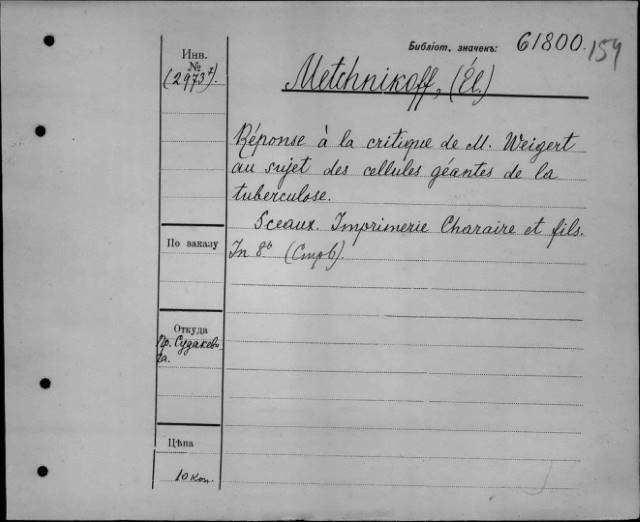 Библіот. значекъ: 61800. 159
Инв.
№
(2973⁷).
Metchnikoff, (Él.)
Réponse à la critique de M. Weigert
au sujet des cellules géantes de la
tuberculose.
Sceaux. Imprimerie Charaire et fils.
In 8º (Стр 6).
По заказу
Откуда
Пр. Судакев
ра.
Цѣна
10 коп.